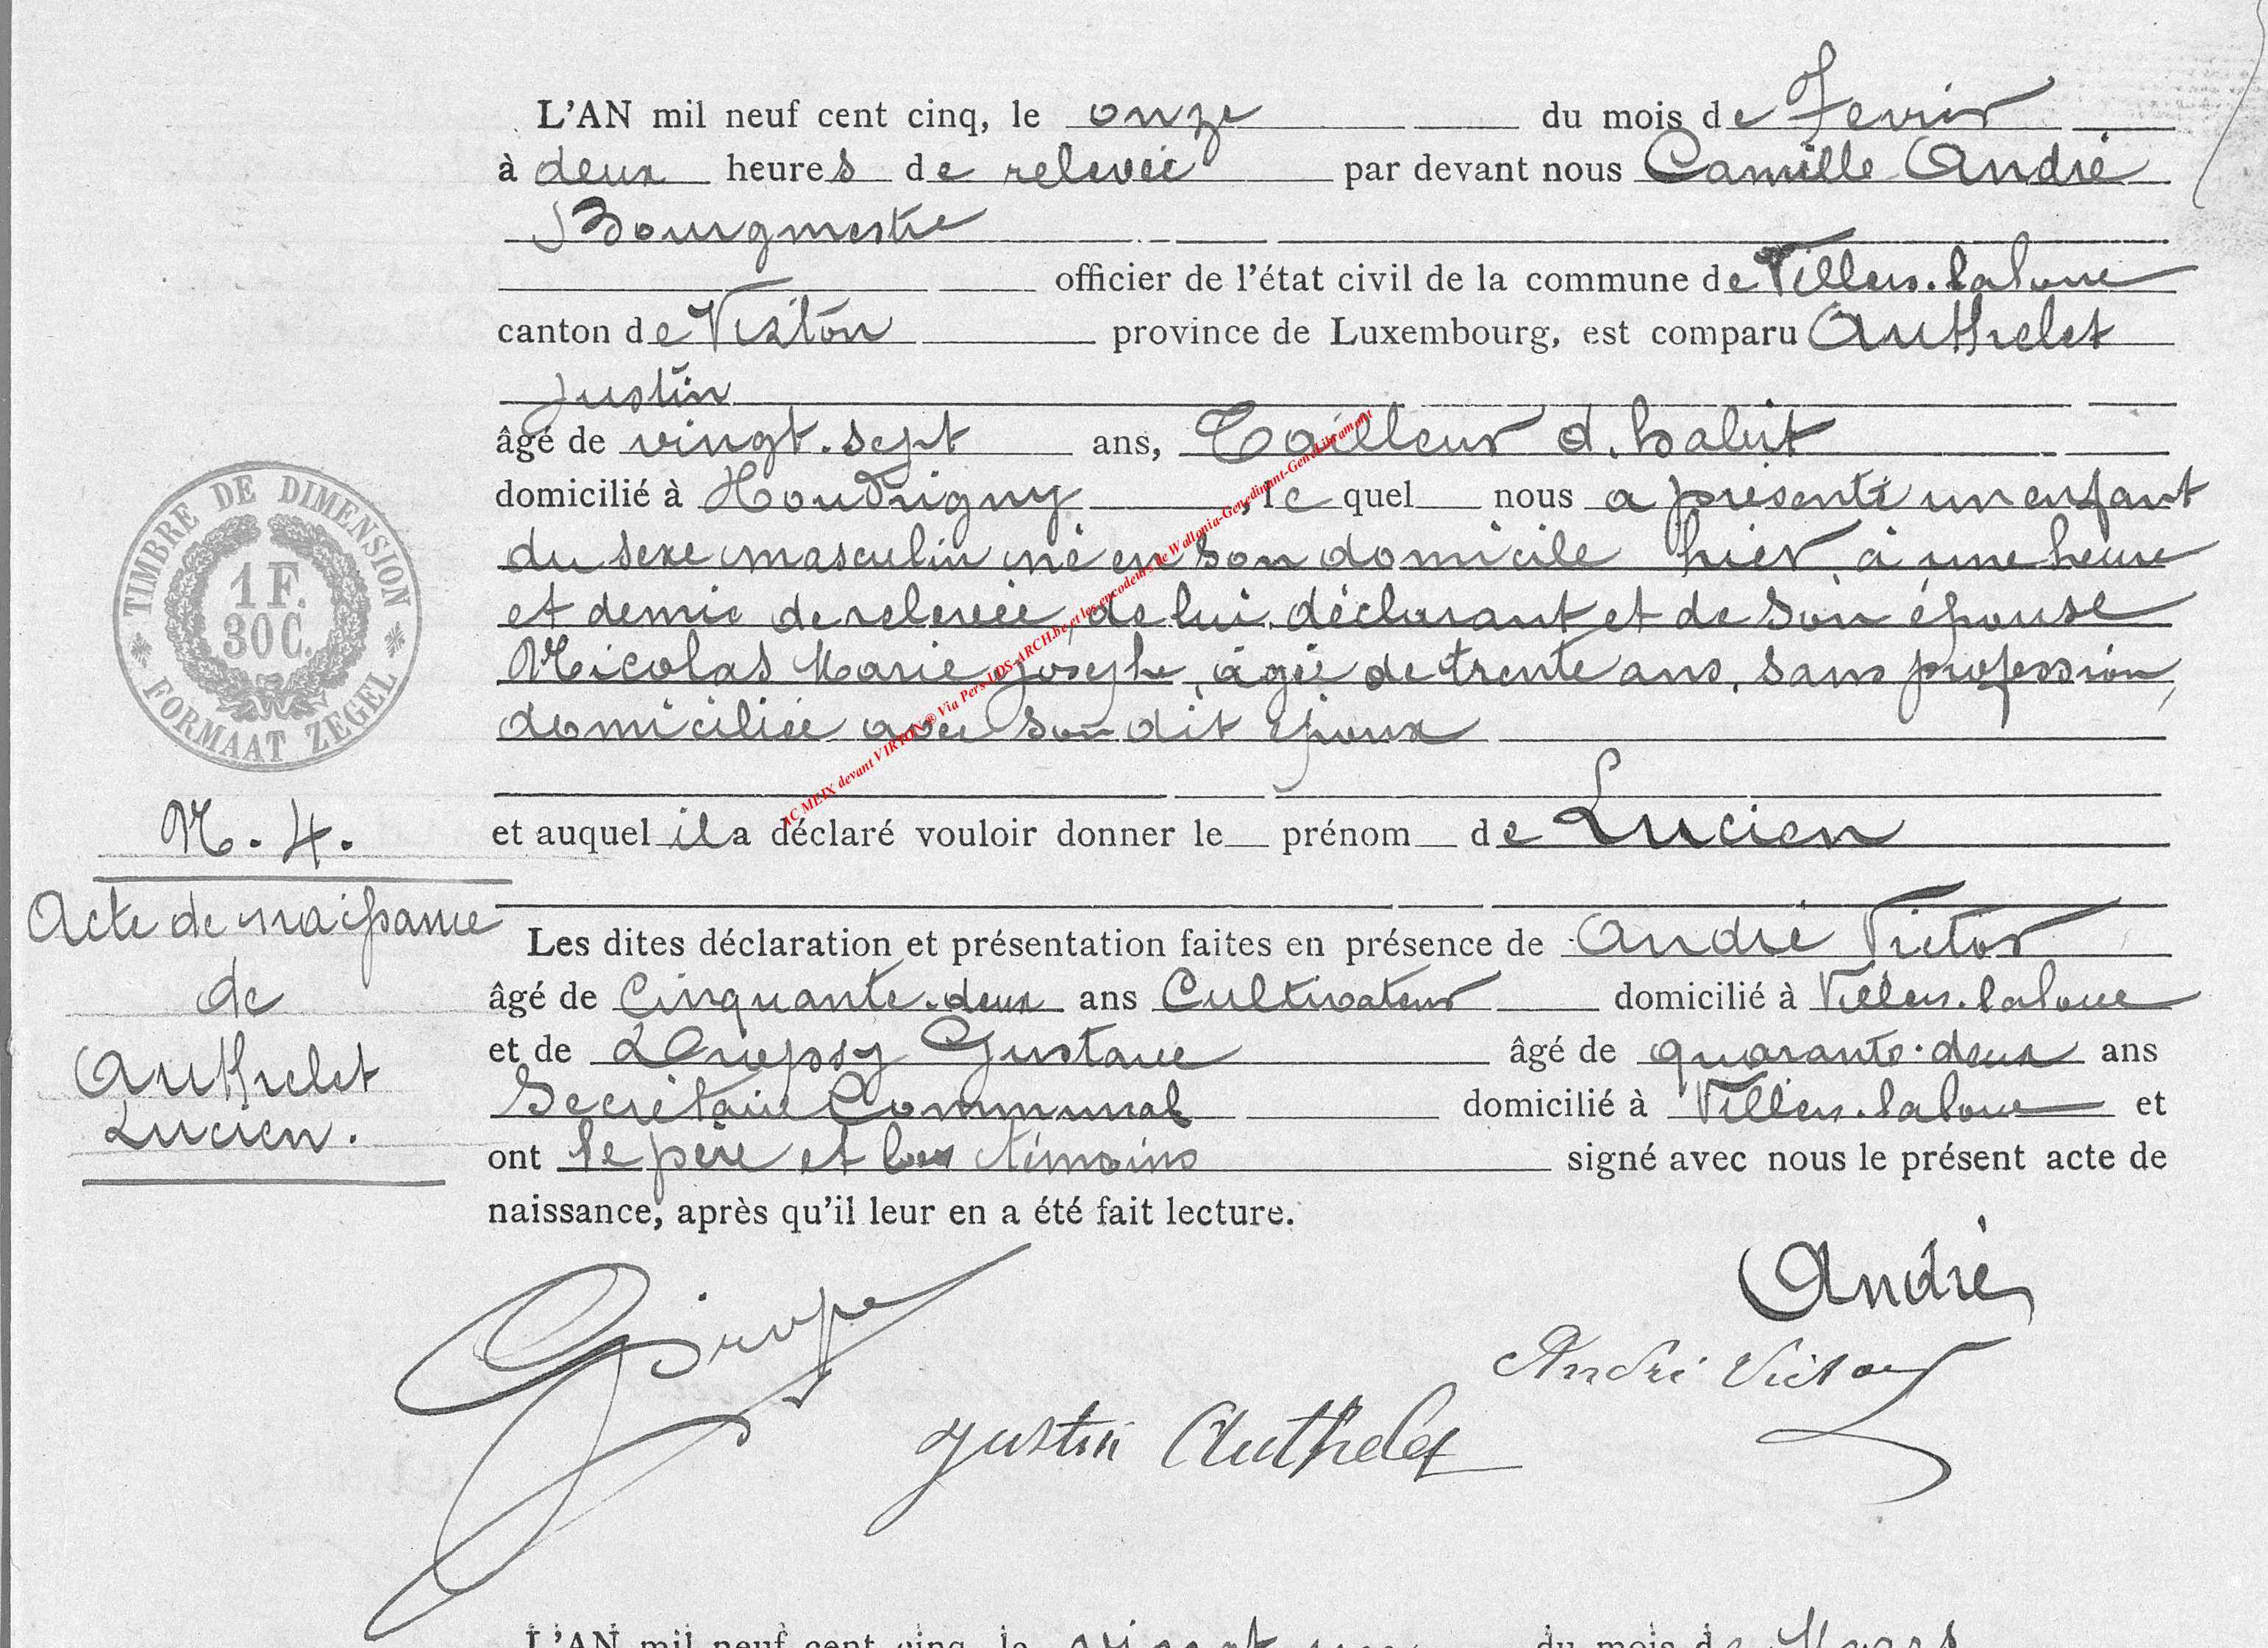 L'AN mil neuf cent cinq, le onze du mois de Fevrier
à deux heures de relevée par devant nous Camille André
Bourgmestre
officier de l'état civil de la commune de Villers-la-loue
canton de Virton province de Luxembourg, est comparu Authelet
Justin
âgé de vingt-sept ans, Tailleur d'habit
domicilié à Houdrigny, le quel nous a présenté un enfant
du sexe masculin né en son domicile hier à une heure
et demie de relevée, de lui déclarant et de son épouse
Nicolas Marie Josephe, âgée de trente ans, sans profession,
domiciliée avec son dit époux
et auquel il a déclaré vouloir donner le prénom de Lucien
Les dites déclaration et présentation faites en présence de André Victor
âgé de Cinquante-deux ans Cultivateur domicilié à Villers-la-loue
et de Gustave âgé de quarante-deux ans
Secrétaire Communal domicilié à Villers-la-loue et
ont le père et les témoins signé avec nous le présent acte de
naissance, après qu'il leur en a été fait lecture.
TIMBRE DE DIMENSION
1 F.
30 C.
FORMAAT ZEGEL
N. 4.
Acte de naissance
de
Authelet
Lucien.
AC MEIX devant VIRTON ® Via Pers-LDS-ARCH.be et les encodeurs de Wallonia-Genedinant-GeneLibramont
André
André Victor
Justin Authelet
L'AN mil neuf cent cinq, le vingt du mois de Mars